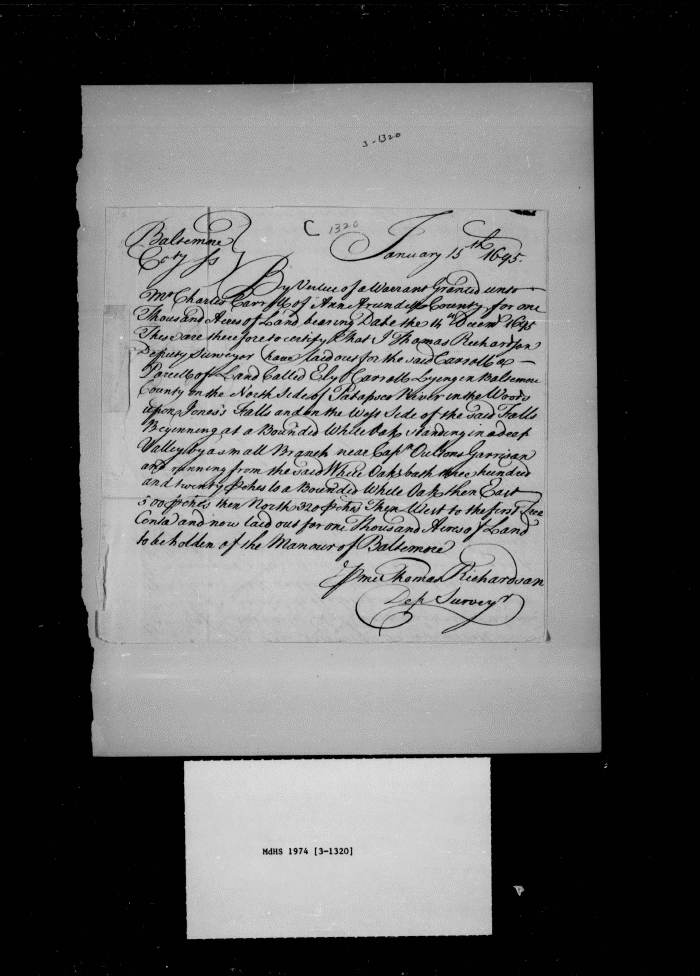 3-1320
C 1320
Baltemore
Coty ss
January 15th 1695.
By Vertue of a Warrant Granted unto
Mr Charles Carroll of Ann Arundell County, for one
Thousand Acres of Land bearing Date the 14th Decemr 1695
These are therefore to certify that I Thomas Richardson
Deputy Surveyor have laid out for the said Carroll a
Parcell of Land Called Ely OCarroll Lyeing in Baltemore
County on the North Side of Patapsco River in the Woods
upon Jones's Falls and on the West Side of the said Falls
Beginning at a Bounded White oak standing in a deep
Valley by a small Branch near Capn Oultons Garrison
and running from the said White Oak South three hundred
and twenty ꝑches to a Bounded White Oak then East
500 ꝑches then North 320 ꝑches Then West to the first Tree
Conta and now laid out for one Thousand Acres of Land
to be holden of the Manour of Baltemore
ꝑ me Thomas Richardson
Dep Surveyr
MdHS 1974 [3-1320]